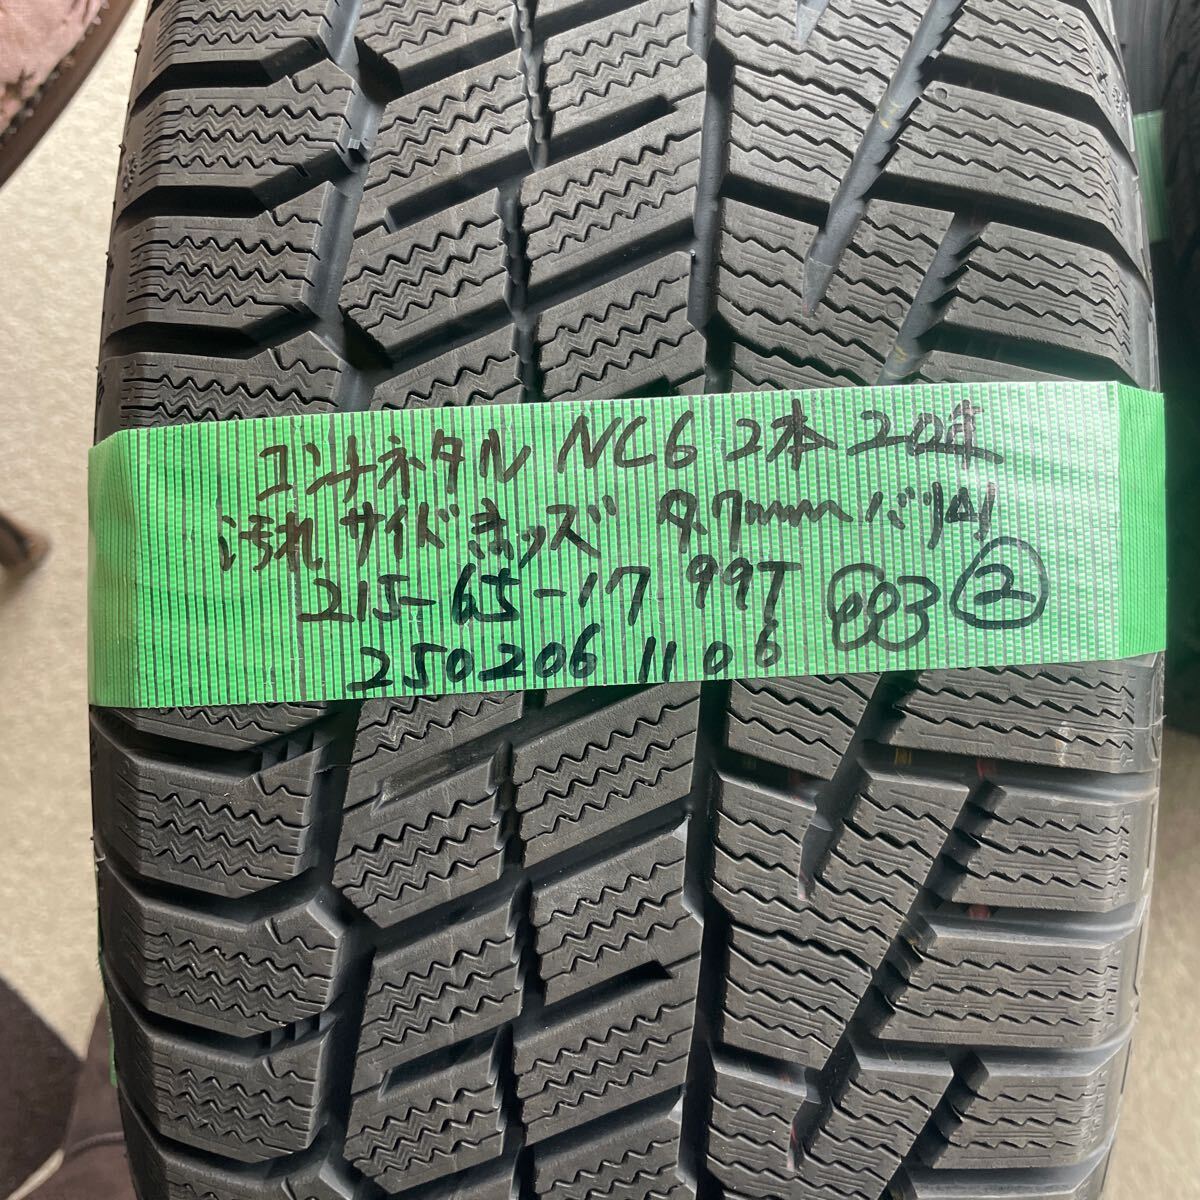 コンチネタル NC6 2本 20年
汚れ サイドキッズ 9.7mmバリ山
215-65-17 99T 603 ②
250206 1106